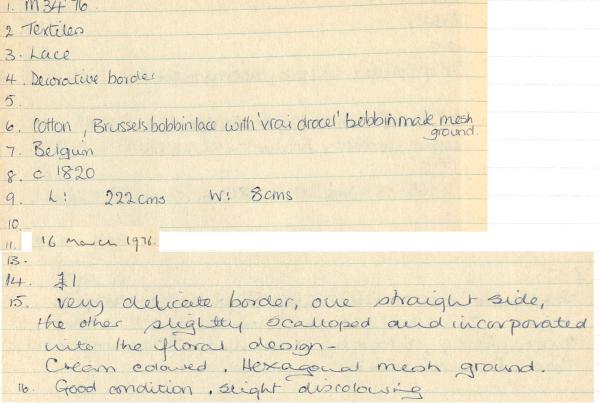 1. M34 76
2 Textiles
3. Lace
4. Decorative border
5.
6. Cotton, Brussels bobbin lace with 'vrai drocel' bobbin made mesh
ground.
7. Belguin
8. c 1820
9. L: 222cms W: 8cms
10.
11. 16 March 1976.
13.
14. £1
15. very delicate border, one straight side,
the other slightly scalloped and incorporated
into the floral design -
Cream coloured. Hexagonal mesh ground.
16. Good condition, slight discolouring